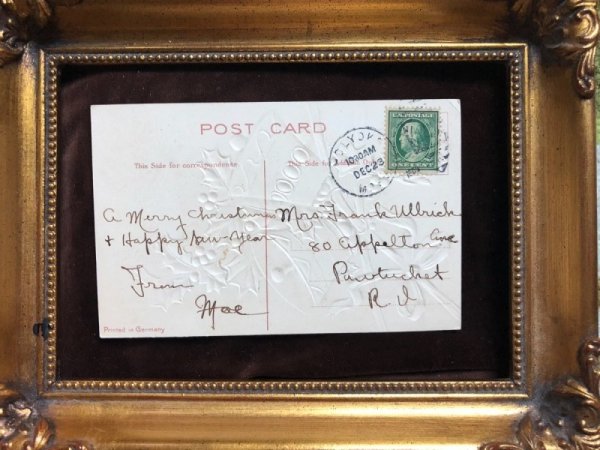 POST CARD
This Side for correspondence
This Side for Address Only
U.S. POSTAGE
ONE CENT
1030AM
DEC 23
A Merry Christmas
& Happy New-Year
From
Mae
Mrs. Frank Ulbrick
80 Appelton Ave
Pawtucket
R I
Printed in Germany